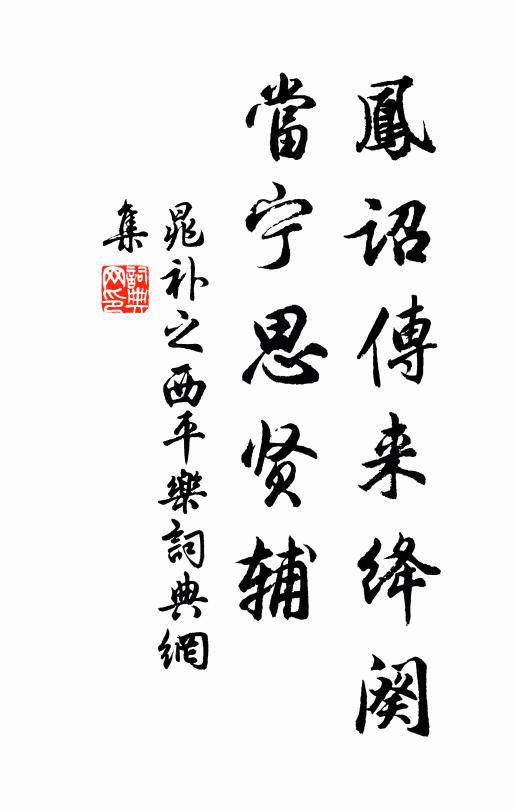 鳳詔傳来绛阙
當宁思贤辅
晁补之西平樂詞典網
集
詞典网印